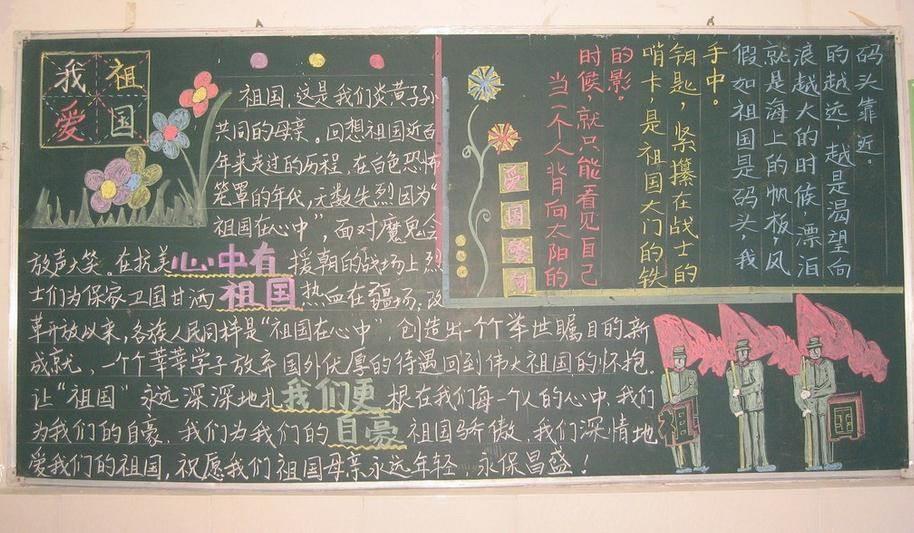 我爱
祖国
祖国,这是我们炎黄子孙
共同的母亲。回想祖国近百
年来走过的历程,在白色恐怖
笼罩的年代,无数先烈因为“
祖国在心中”,面对魔鬼会
放声大笑。在抗美援朝的战场上烈
士们为保家卫国甘洒热血在疆场;改
革开放以来,各族人民同样是“祖国在心中”,创造出一个个举世瞩目的新
成就,一个个莘莘学子放弃国外优厚的待遇回到伟大祖国的怀抱。
让“祖国”永远深深地扎根在我们每一个人的心中,我们
为我们的自豪,我们为我们的祖国骄傲,我们深情地
爱我们的祖国,祝愿我们祖国母亲永远年轻,永保昌盛!
心中有
祖国
我们更
自豪
码头靠近。
的越远,越是渴望向
浪越大的时候,漂泊
就是海上的帆板,风
假如祖国是码头,我
手中。
钥匙,紧攥在战士的
哨卡,是祖国大门的铁
的影。
时候,就只能看见自己
当一个人背向太阳的
爱
国
祖
国